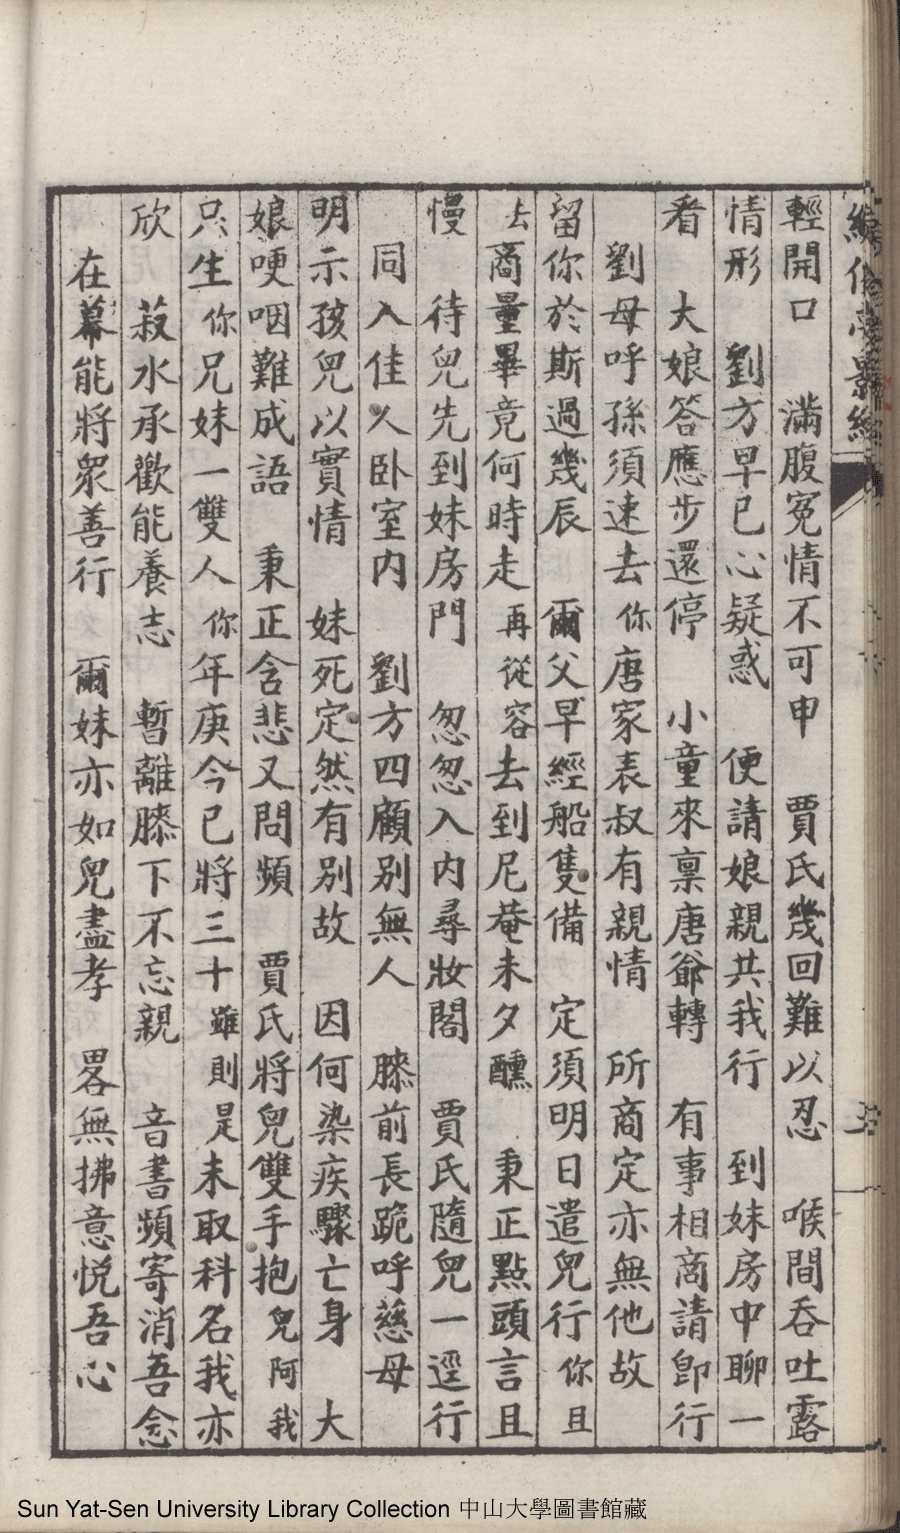 輕開口　滿腹冤情不可申　賈氏幾回難以忍　喉間吞吐露
情形　劉方早已心疑惑　便請娘親共我行　到妹房中聊一
看　大娘答應步還停　小童來稟唐爺轉　有事相商請卽行
劉母呼孫須速去　你唐家表叔有親情　所商定亦無他故
留你於斯過幾辰　爾父早經船隻備　定須明日遣兒行　你且
去商量畢竟何時走　再從容去到尼菴未夕醺　秉正點頭言且
慢　待兒先到妹房門　怱怱入內尋妝閣　賈氏隨兒一逕行
同入佳人卧室內　劉方四顧別無人　膝前長跪呼慈母
明示孩兒以實情　妹死定然有別故　因何染疾驟亡身　大
娘哽咽難成語　秉正含悲又問頻　賈氏將兒雙手抱　兒阿我
只生你兄妹一雙人　你年庚今已將三十　雖則是未取科名我亦
欣　菽水承歡能養志　暫離膝下不忘親　音書頻寄消吾念
在幕能將衆善行　爾妹亦如兒盡孝　畧無拂意悅吾心
Sun Yat-Sen University Library Collection 中山大學圖書館藏